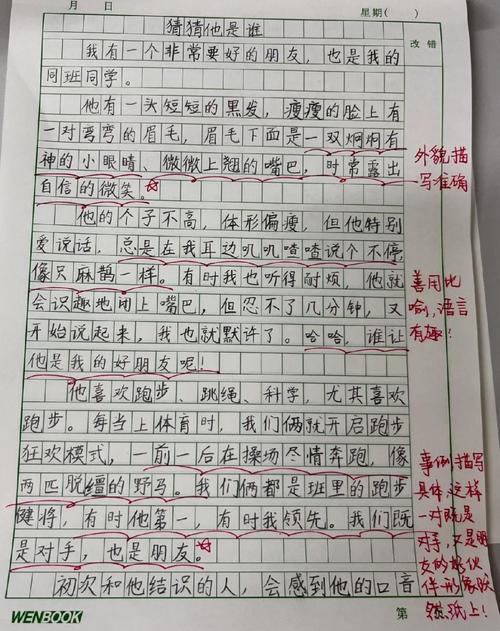 月 日 星期( )
猜猜他是谁
改错
我有一个非常要好的朋友，也是我的
同班同学。
他有一头短短的黑发，瘦瘦的脸上有
一对弯弯的眉毛，眉毛下面是一双炯炯有
神的小眼睛、微微上翘的嘴巴，时常露出
自信的微笑。
外貌描
写准确
他的个子不高，体形偏瘦，但他特别
爱说话，总是在我耳边叽叽喳喳说个不停，
像只麻鹊一样。有时我也听得耐烦，他就
会识趣地闭上嘴巴，但忍不了几分钟，又
开始说起来，我也就默许了。哈哈，谁让
他是我的好朋友呢！
善用比
喻，语言
有趣！
他喜欢跑步、跳绳、科学，尤其喜欢
跑步。每当上体育时，我们俩就开启跑步
狂欢模式，一前一后在操场尽情奔跑，像
两匹脱缰的野马。我们俩都是班里的跑步
健将，有时他第一，有时我领先。我们既
是对手，也是朋友。
事例描写
具体，这样
一对既是
对手，又是朋
友的
伴形象跃
然纸上！
初次和他结识的人，会感到他的口音
WENBOOK 第